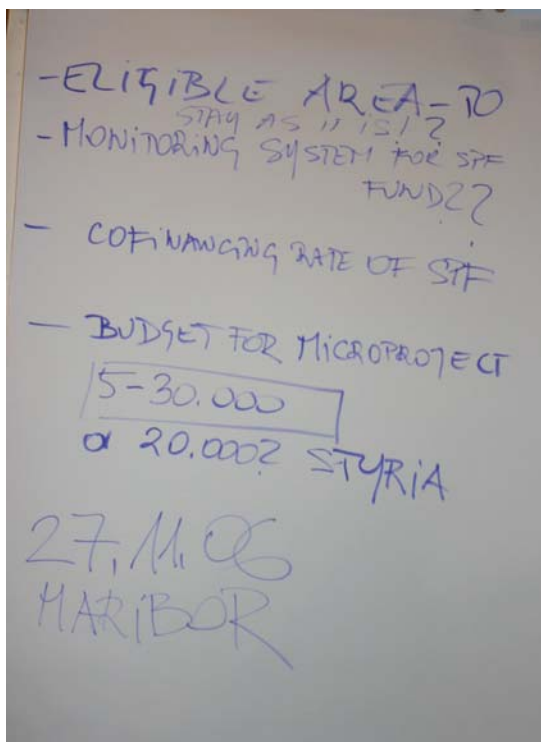 - ELIGIBLE AREA - TO
STAY AS "IS"?
- MONITORING SYSTEM FOR SPF
FUND??
- COFINANCING RATE OF SPF
- BUDGET FOR MICROPROJECT
5-30.000
20.000? STYRIA
27.11.06
MARIBOR